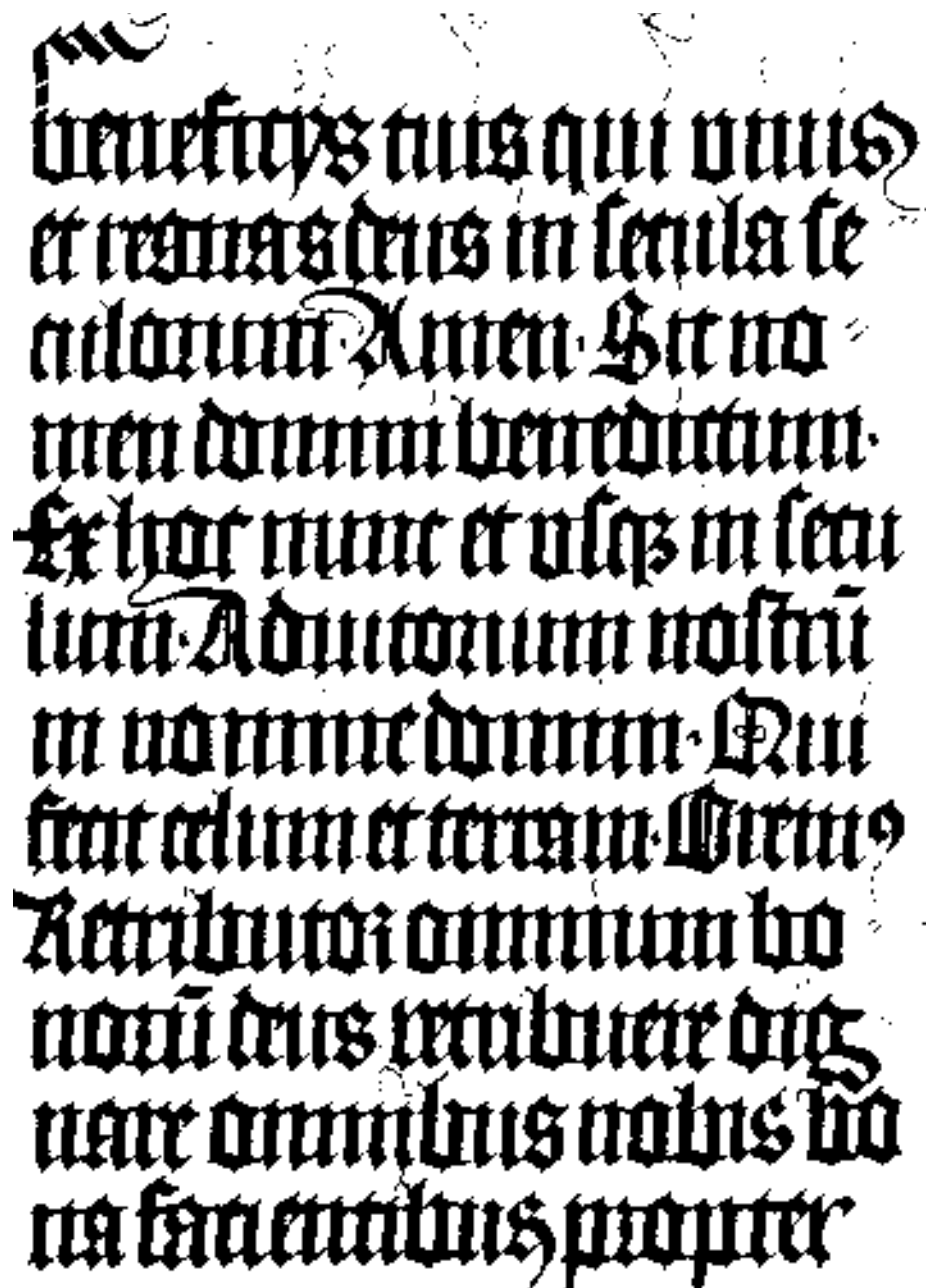 beneficijs tuis qui viuis
et regnas deus in secula se
culorum · Amen · Sit no
men domini benedictum ·
Ex hoc nunc et vsqꝫ in secu
lum · Adiutorium nostrū
in nomine domini · Qui
fecit celum et terram · Oremꝰ
Retributor omnium bo
norū deus retribuere dig
nare omnibus nobis bo
na facientibus propter